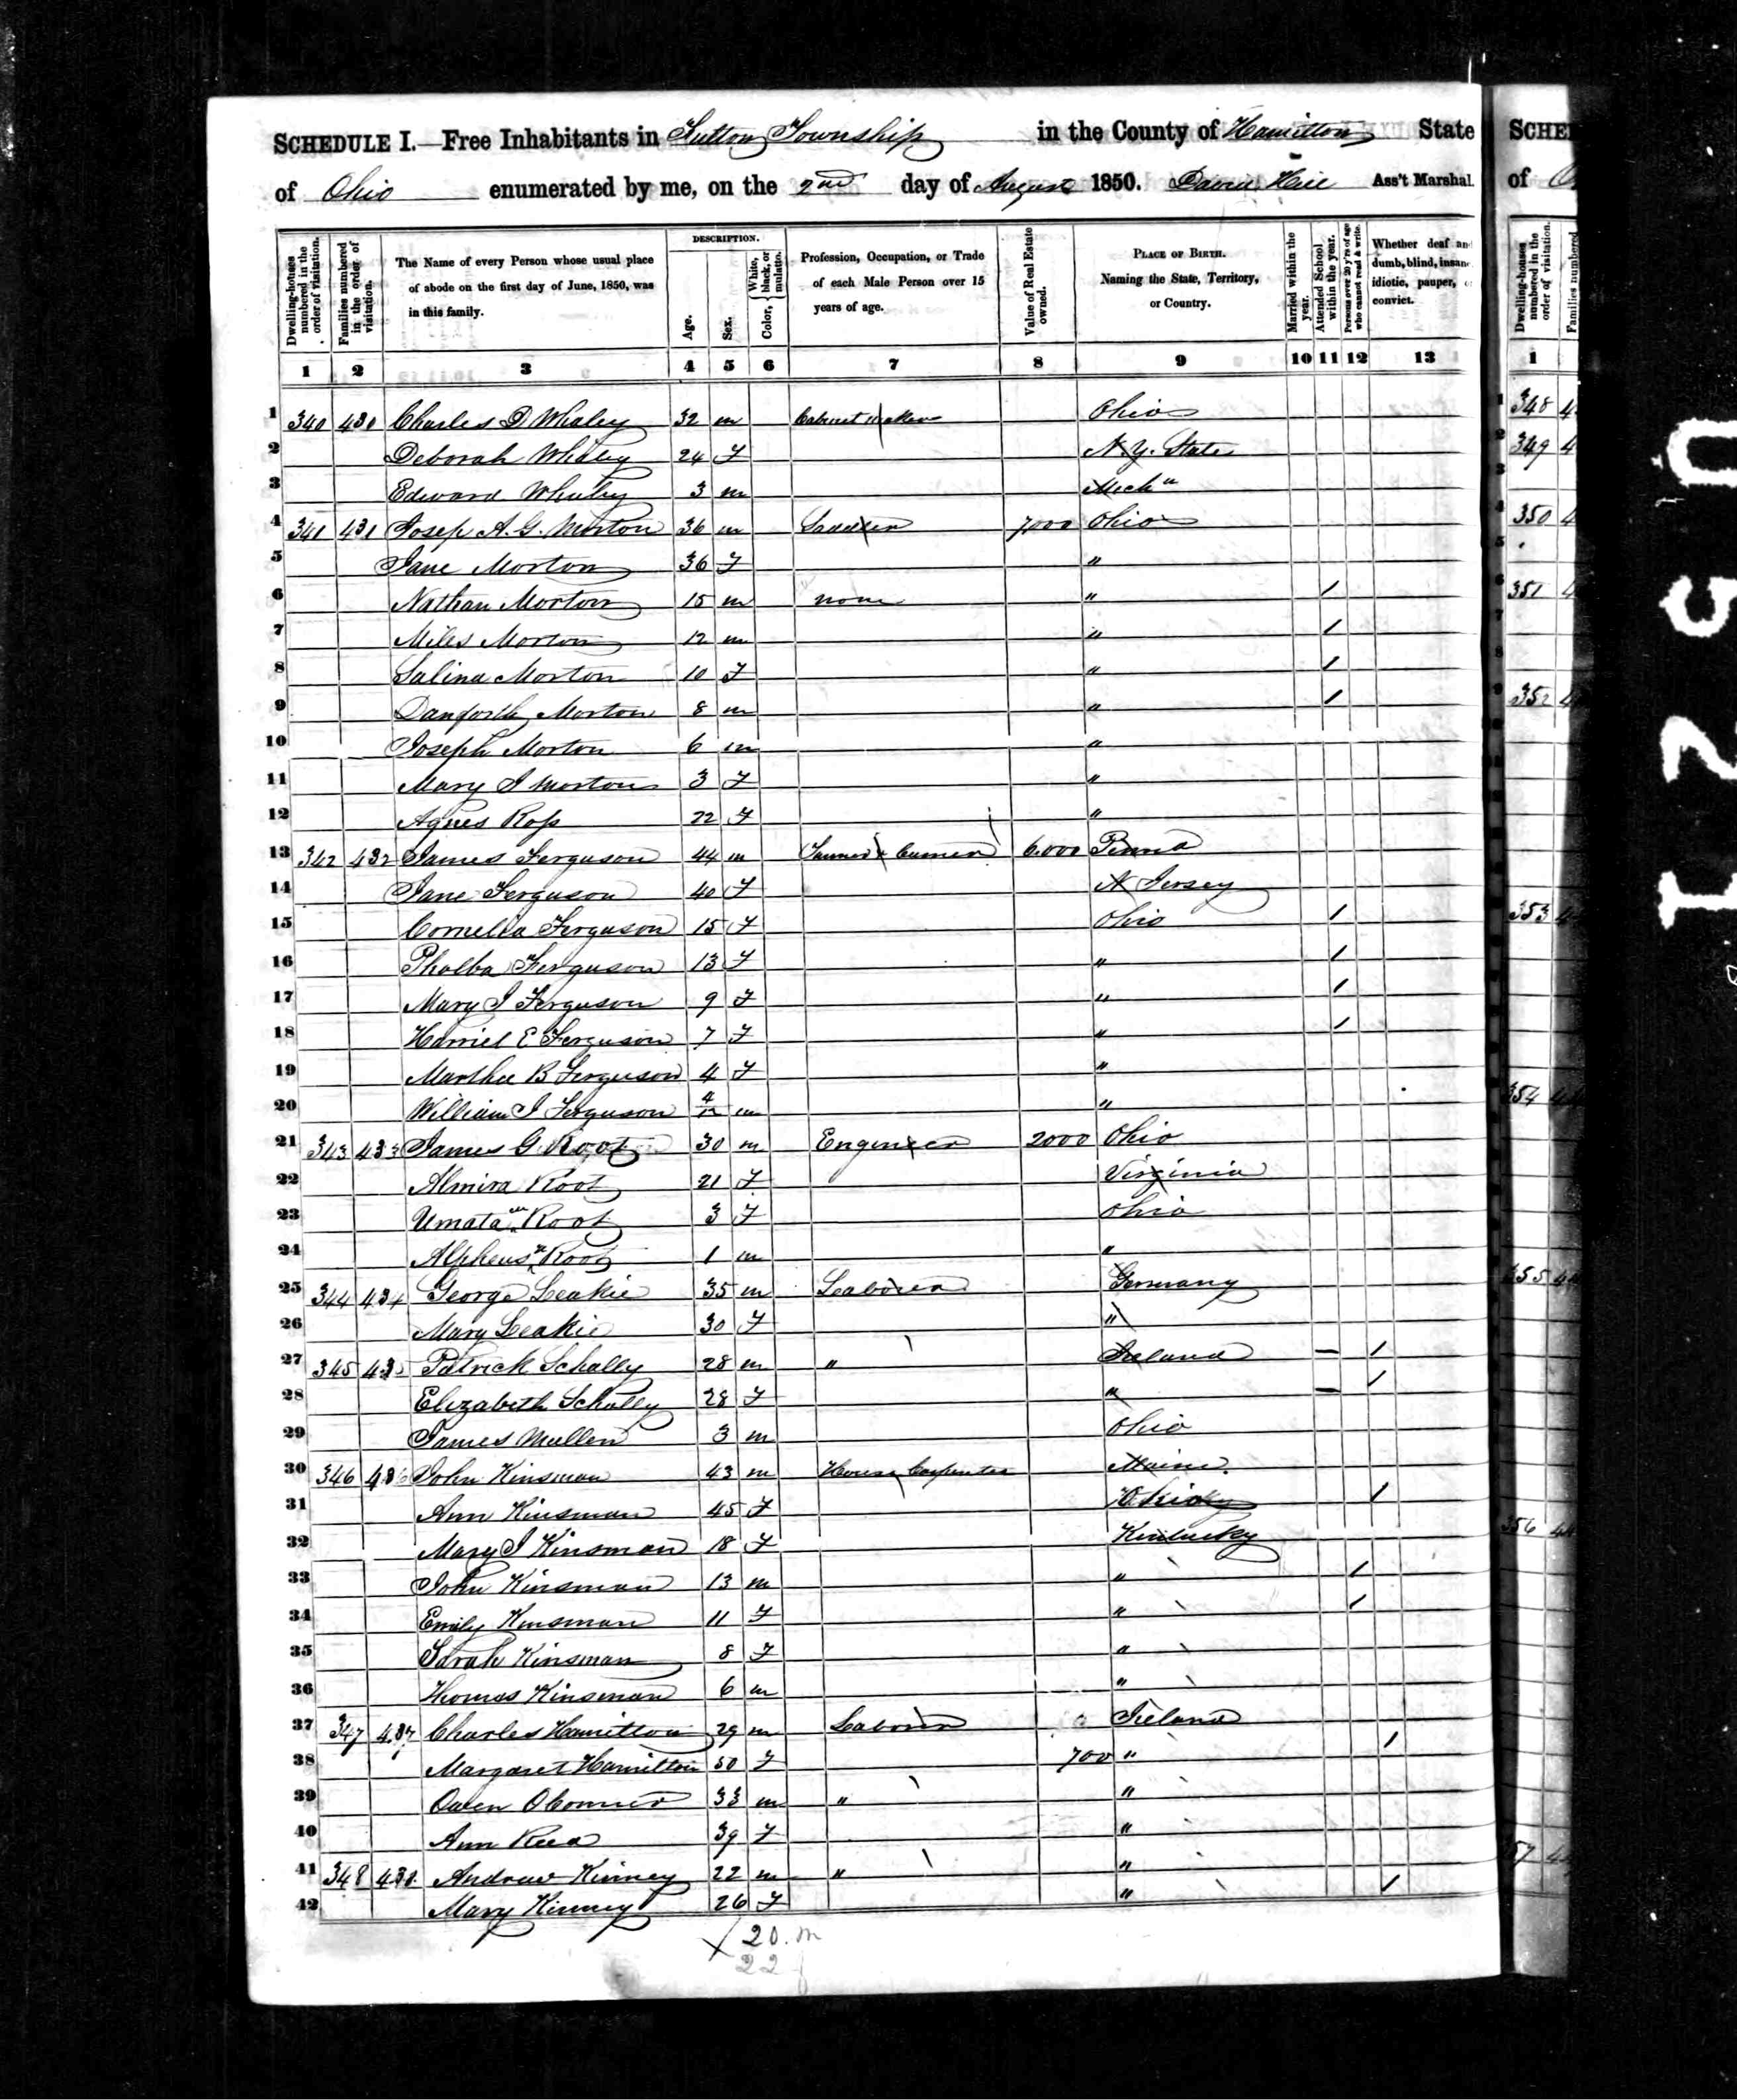 SCHEDULE I.—Free Inhabitants in Fulton Township in the County of Hamilton State
of Ohio enumerated by me, on the 2nd day of August 1850. David Hill Ass't Marshal.
Dwelling-houses numbered in the order of visitation.
Families numbered in the order of visitation.
The Name of every Person whose usual place of abode on the first day of June, 1850, was in this family.
DESCRIPTION.
Age.
Sex.
Color, { White, black, or mulatto.
Profession, Occupation, or Trade of each Male Person over 15 years of age.
Value of Real Estate owned.
PLACE OF BIRTH. Naming the State, Territory, or Country.
Married within the year.
Attended School within the year.
Persons over 20 y'rs of age who cannot read & write.
Whether deaf and dumb, blind, insane, idiotic, pauper, or convict.
1 2 3 4 5 6 7 8 9 10 11 12 13
1 340 430 Charles D Whaley 32 m Cabinet Maker Ohio
2 Deborah Whaley 24 F N.Y. State
3 Edward Whaley 3 m Mich"
4 341 431 Josep A. G. Morton 36 m 7000 Ohio
5 Jane Morton 36 F "
6 Nathan Morton 15 m none " /
7 Miles Morton 12 m " /
8 Salina Morton 10 F " /
9 Danforth Morton 8 m " /
10 Joseph Morton 6 m "
11 Mary J Morton 3 F "
12 Agnes Ross 22 F "
13 342 432 James Ferguson 44 m Tanner & Currier 6.000 Penna
14 Jane Ferguson 40 F N Jersey
15 Cornelia Ferguson 15 F Ohio /
16 Pholba Ferguson 13 F " /
17 Mary J Ferguson 9 F " /
18 Harriet E Ferguson 7 F " /
19 Martha B Ferguson 4 F "
20 William J Ferguson 4/12 m "
21 343 433 James G. Root 30 m Engineer 2000 Ohio
22 Almira Root 21 F Virginia
23 Umata Root 3 F Ohio
24 Alpheus Root 1 m "
25 344 434 George Leakie 35 m Laborer Germany
26 Mary Leakie 30 F "
27 345 435 Patrick Schally 28 m " Ireland – /
28 Elizabeth Schally 28 F " – /
29 James Mullen 3 m Ohio
30 346 436 John Kinsman 43 m House Carpenter Maine
31 Ann Kinsman 45 F /
32 Mary J Kinsman 18 F Kentucky
33 John Kinsman 13 m " /
34 Emily Kinsman 11 F " /
35 Sarah Kinsman 8 F "
36 Thomas Kinsman 6 m "
37 347 437 Charles Hamilton 29 m Laborer Ireland
38 Margaret Hamilton 50 F 700 " /
39 Owen OConner 33 m " "
40 Ann 39 F "
41 348 438 Andrew Kinney 22 m " "
42 Mary Kinney 26 F " /
20. m
22 f
SCHE
of O
Dwelling-houses numbered in the order of visitation.
Families numbered
1
348 4
349 4
350 4
351 4
352 4
353
354
355
356
357